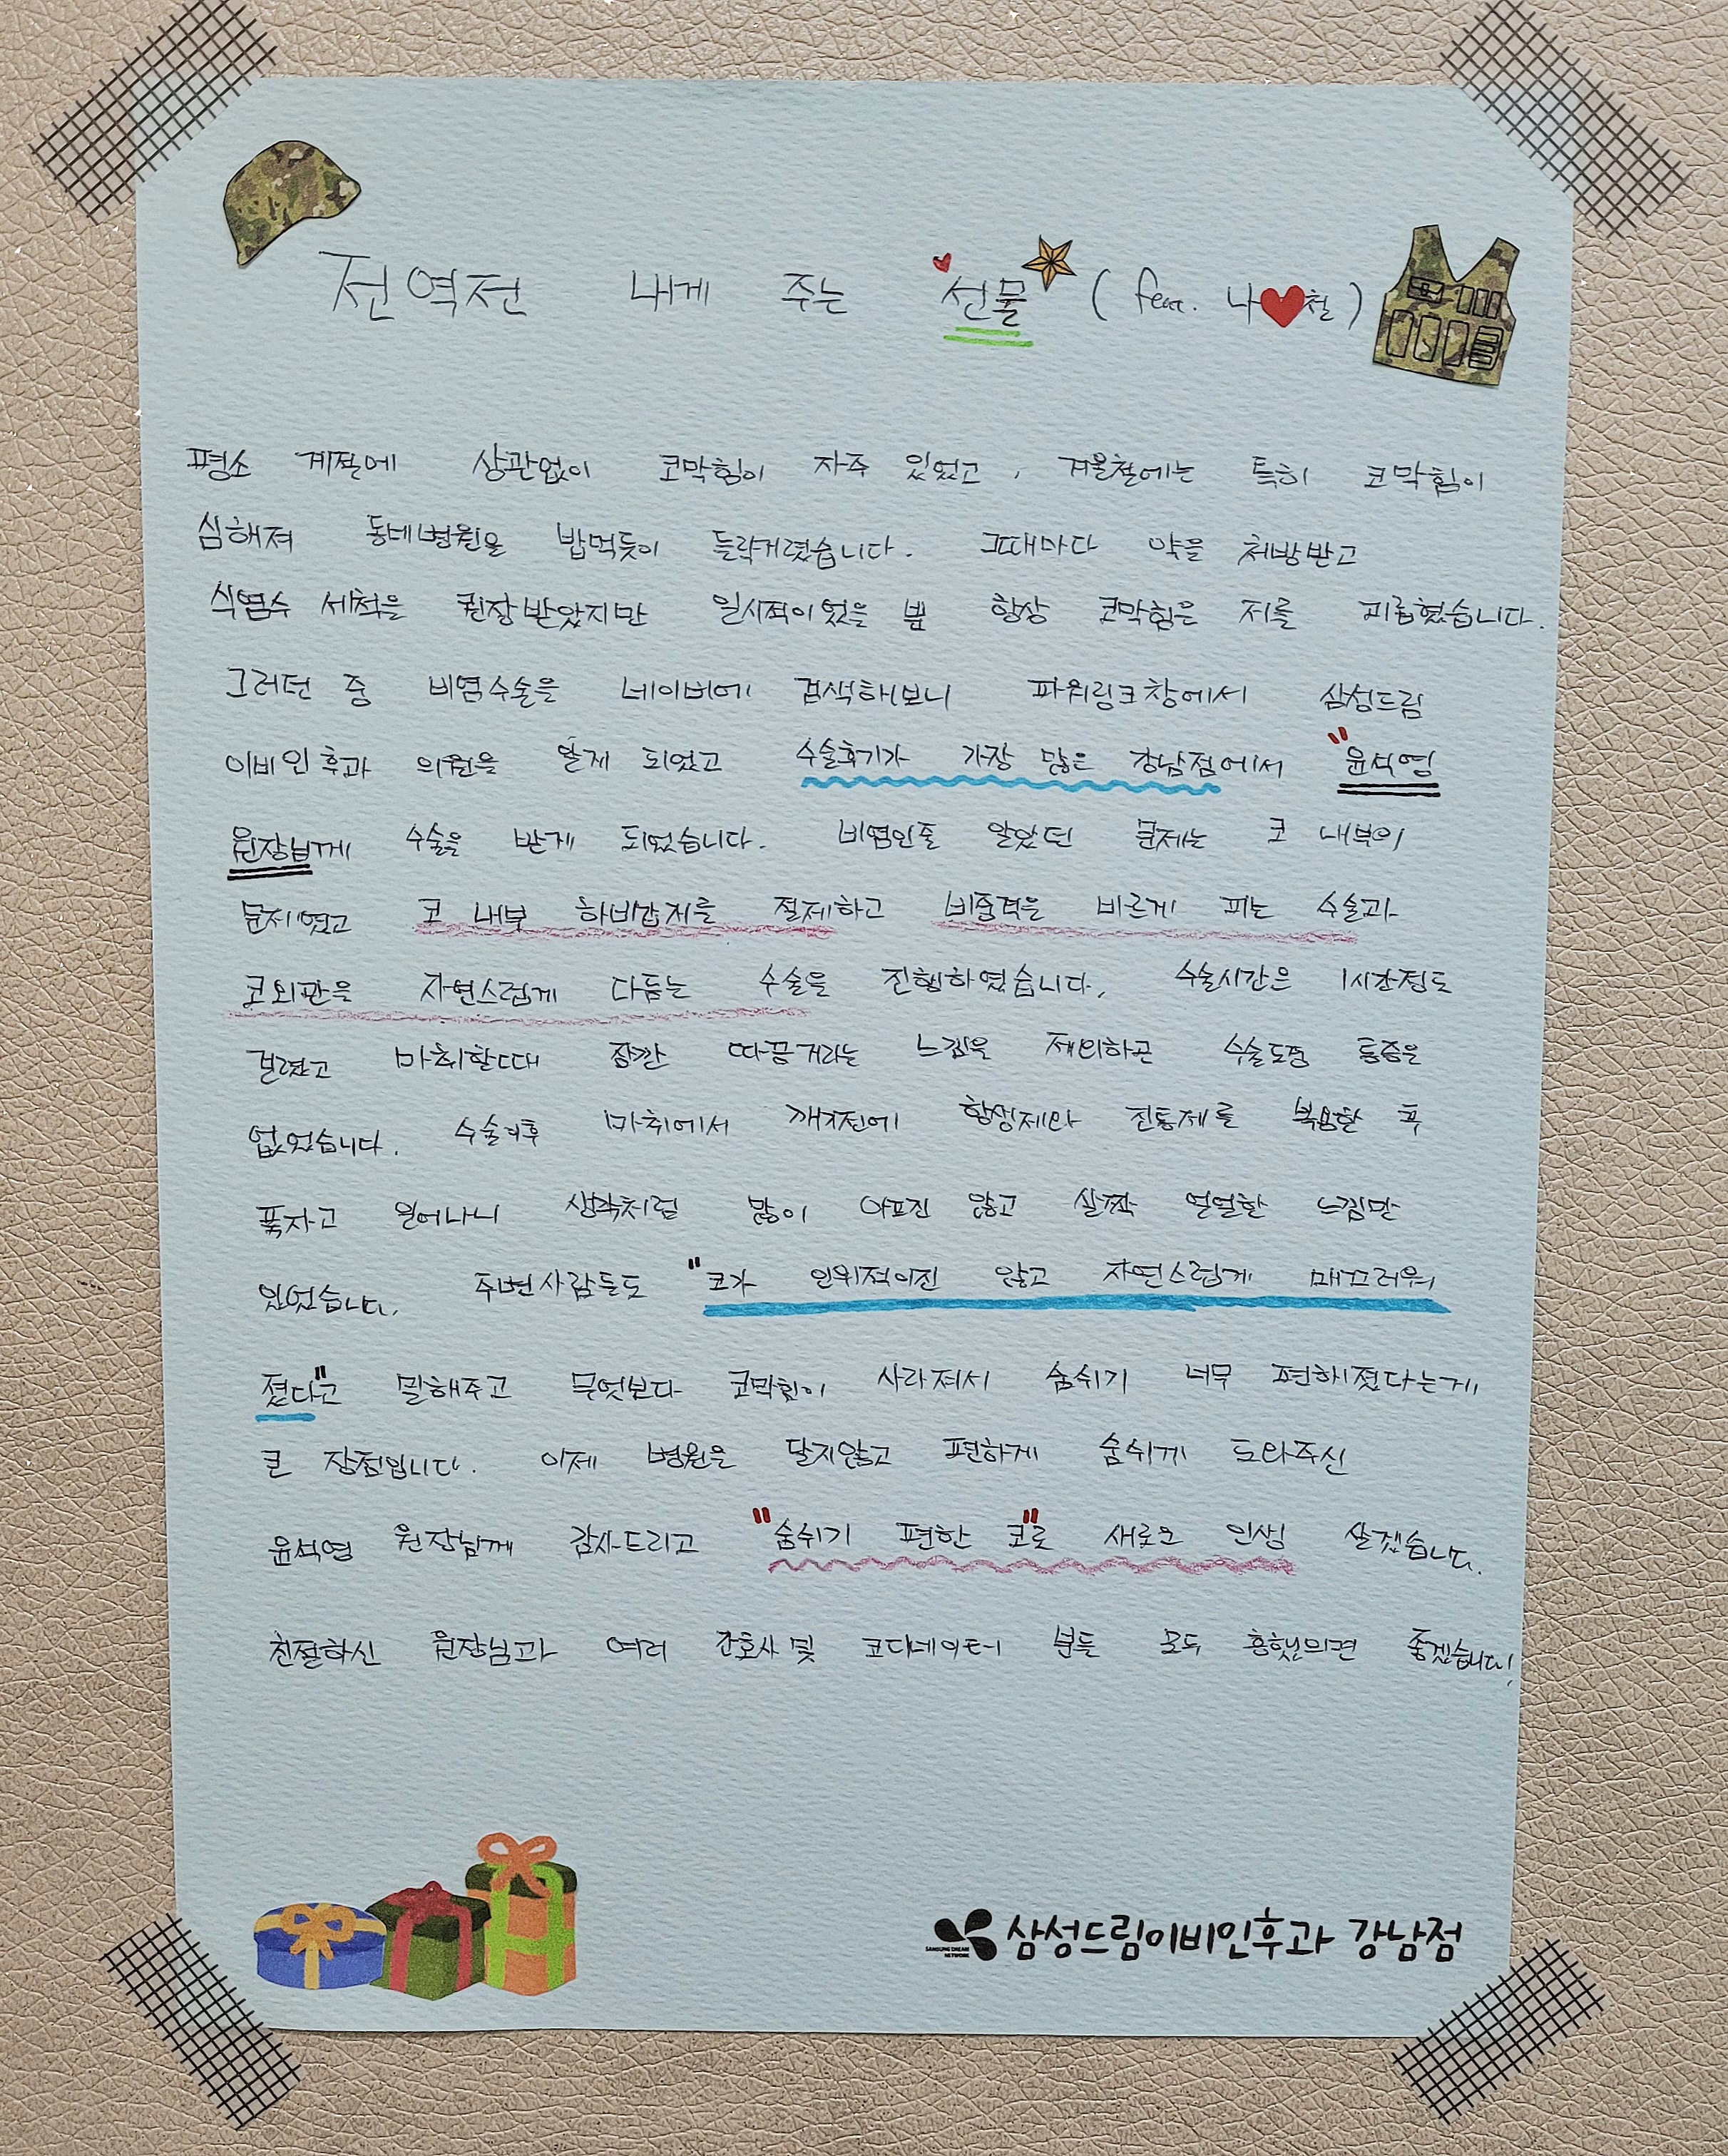 전역전 내게 주는 선물 (feat. 나♥철)
평소 계절에 상관없이 코막힘이 자주 있었고, 겨울철에는 특히 코막힘이
심해져 동네병원을 밥먹듯이 들락거렸습니다. 그때마다 약을 처방받고
식염수 세척을 권장받았지만 일시적이었을 뿐 항상 코막힘은 저를 괴롭혔습니다.
그러던 중 비염수술을 네이버에 검색해보니 파워링크창에서 삼성드림
이비인후과 의원을 알게 되었고 수술후기가 가장 많은 강남점에서 "윤석영
원장님께 수술을 받게 되었습니다. 비염인줄 알았던 문제는 코 내부의
문제였고 코 내부 하비갑개를 절제하고 비중격을 바르게 펴는 수술과
코외관을 자연스럽게 다듬는 수술을 진행하였습니다. 수술시간은 1시간정도
걸렸고 마취할때 잠깐 따끔거리는 느낌을 제외하곤 수술도중 통증은
없었습니다. 수술이후 마취에서 깨기전에 항생제와 진통제를 복용한 후
푹자고 일어나니 생각처럼 많이 아프진 않고 살짝 얼얼한 느낌만
있었습니다. 주변사람들도 "코가 인위적이진 않고 자연스럽게 매끄러워
졌다"고 말해주고 무엇보다 코막힘이 사라져서 숨쉬기 너무 편해졌다는게
큰 장점입니다. 이제 병원은 달지않고 편하게 숨쉬게 도와주신
윤석영 원장님께 감사드리고 "숨쉬기 편한 코"로 새로운 인생 살겠습니다.
친절하신 원장님과 여러 간호사 및 코디네이터 분들 모두 흥했으면 좋겠습니다!
SAMSUNG DREAM
NETWORK
삼성드림이비인후과 강남점